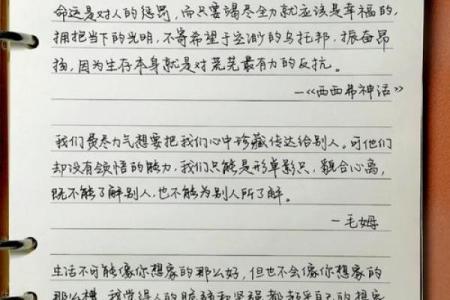 命运是对人的惩罚，而只要竭尽全力就应该是幸福的，
拥抱当下的光明，不寄希望于空渺的乌托邦，振奋昂
扬，因为生存本身就是对荒芜最有力的反抗。
—《西西弗神话》
我们费尽力气想要把我们心中珍藏传达给别人。可他们
却没有领悟的能力，我们只能是形单影只，貌合心离，
既不能了解别人，也不能为别人所了解。
—毛姆
生活不可能像你想象的那么好，但也不会像你想象的
那么糟，我觉得人的脆弱和坚强都超乎自己的想象